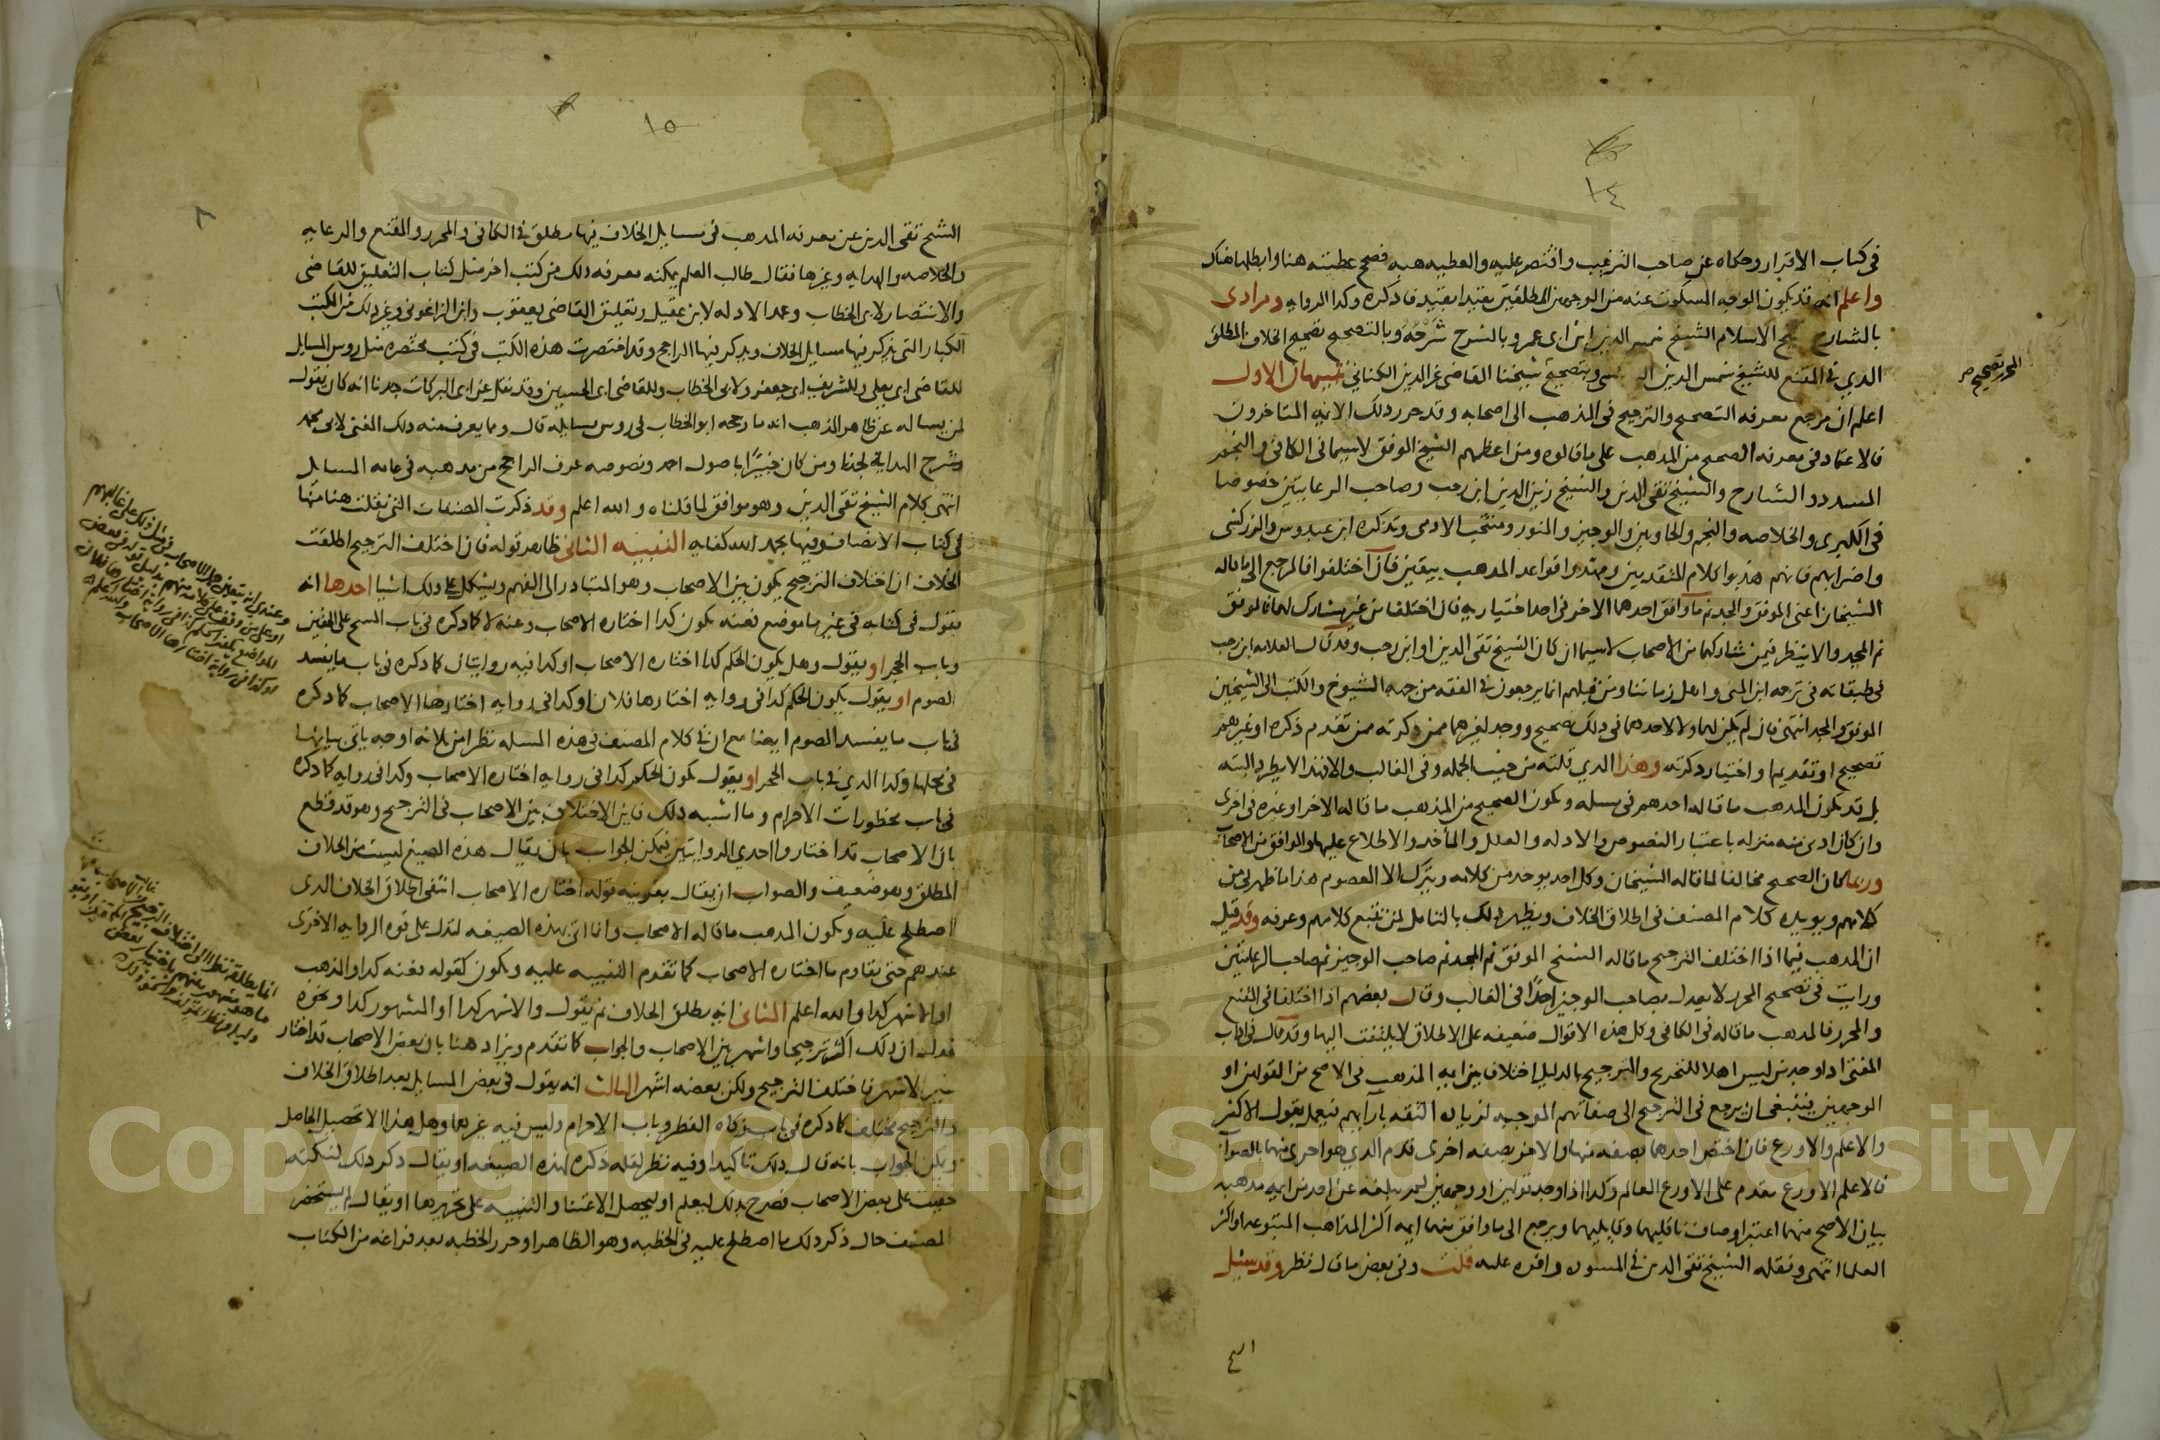 ١٤
في كتاب الاقرار وحكاه عن صاحب الترغيب واقتصر عليه والعطيه هبه فصح عطيته هنا وابطلها هناك
واعلم انه قد يكون الوجه المسكوت عنه من الوجهين المطلقين مقيدا بقيد فاذكره وكذا الروايه ومرادى
بالشارح شيخ الاسلام الشيخ شمس الدين ابن ابى عمر وبالشرح شرحه وبالتصحيح تصحيح الخلاف المطلق
الذي في المقنع للشيخ شمس الدين وبتصحيح شيخنا القاضى عز الدين الكناني تنبيهان الاول
المحرر تصحيح
اعلم ان مرجع معرفه التصحيح والترجيح في المذهب الى اصحابه وقد حرر ذلك الايمه المتاخرون
فالاعتماد في معرفه الصحيح من المذهب على ما قالوه ومن اعظمهم الشيخ الموفق لاسيما في الكافي والمجد
المسدد والشارح والشيخ تقى الدين والشيخ زين الدين ابن رجب وصاحب الرعايتين خصوصا
في الكبرى والخلاصه والنظم والحاويين والوجيز والمنور ومنتخب الادمى وتذكره ابن عبدوس والزركشى
واضرابهم فانهم هذبوا كلام المتقدمين ومهدوا قواعد المذهب بيقين فان اختلفوا فالمرجع الى ما قاله
الشيخان اعنى الموفق والمجد ثم ما وافق احدهما الاخر في احد اختياريه فان اختلفا من غير مشارك لهما فالموفق
ثم المجد والا ينظر فيمن شاركهما من الاصحاب لاسيما ان كان الشيخ تقى الدين او ابن رجب وقد قال العلامه ابن رجب
في طبقاته في ترجمه ابن المنى واهل زماننا ومن قبلهم انما يرجعون في الفقه من جهه الشيوخ والكتب الى الشيخين
الموفق والمجد انتهى فان لم يكن لهما ولا لاحدهما في ذلك تصحيح ووجد لغيرهما ممن ذكرته ممن تقدم ذكره او غيرهم
تصحيح او تقديم او اختيار ذكرته وهذا الذي قلته من حيث الجمله وفي الغالب والا فهذا لا يطرد البته
بل قد يكون المذهب ما قاله احدهم في مسله ويكون الصحيح من المذهب ما قاله الاخر او غيره في اخرى
وان كان ادنى منه منزله باعتبار النصوص والادله والعلل والمأخذ والاطلاع عليها والموافق من الاصحاب
وربما كان الصحيح مخالفا لما قاله الشيخان وكل احد يوخذ من كلامه ويترك الا المعصوم هذا ما ظهر لي من
كلامهم ويويده كلام المصنف في اطلاق الخلاف ويظهر ذلك بالتامل لمن تتبع كلامهم وعرفه وقد قيل
ان المذهب فيما اذا اختلف الترجيح ما قاله الشيخ الموفق ثم المجد ثم صاحب الوجيز ثم صاحب الرعايتين
ورايت في تصحيح المحرر لا يعدل بصاحب الوجيز احدا في الغالب وقال بعضهم اذا اختلفا في المقنع
والمحرر فالمذهب ما قاله في الكافي وكل هذه الاقوال ضعيفه على الاطلاق لا يلتفت اليها وقد قال في اداب
المفتى اذا وجد من ليس اهلا للتخريج والترجيح بالدليل اختلاف بين ايمه المذهب في الاصح من القولين او
الوجهين فينبغى ان يرجع في الترجيح الى صفاتهم الموجبه لزياده الثقه بارآيهم فيعمل بقول الاكثر
والاعلم والاورع فان اختص احدهما بصفه منها والاخر بصفه اخرى قدم الذي هو احرى منهما بالصواب
فالاعلم الاورع مقدم على الاورع العالم وكذا اذا وجد قولين او وجهين لم يبلغه عن احد من ايمه مذهبه
بيان الاصح منهما اعتبر اوصاف ناقليهما وقابليهما ويرجح الى ما وافق منهما ايمه اكثر المذاهب المتبوعه او اكثر
العلما انتهى ونقله الشيخ تقى الدين في المسوده واقره عليه قلت وفي بعض ما قال نظر وقد سئل
١٥
٨
الشيخ تقى الدين عن معرفه المذهب في مسايل الخلاف فيها مطلق في الكافى والمحرر والمقنع والرعايه
والخلاصه والهدايه وغيرها فقال طالب العلم يمكنه معرفه ذلك من كتب اخر مثل كتاب التعليق للقاضى
والانتصار لابى الخطاب وعمد الادله لابن عقيل وتعليق القاضى يعقوب وابن الزاغونى وغير ذلك من الكتب
الكبار التى يذكر فيها مسايل الخلاف ويذكر فيها الراجح وقد اختصرت هذه الكتب في كتب مختصره مثل روس المسايل
للقاضى ابى يعلى وللشريف ابى جعفر ولابى الخطاب وللقاضى ابى الحسين وقد نقل عن ابى البركات جدنا انه كان يقول
لمن يساله عن ظاهر المذهب انه ما رجحه ابو الخطاب في روس مسايله قال ومما يعرف منه ذلك المغنى لابى محمد
وشرح الهدايه لجدنا ومن كان خبيرا باصول احمد ونصوصه عرف الراجح من مذهبه في عامه المسايل
انتهى كلام الشيخ تقى الدين وهو موافق لما قلناه والله اعلم وقد ذكرت المصنفات التى نقلت هنا منها
في كتاب الانصاف وفيها بحمد الله كفايه التنبيه الثاني ظاهر قوله فان اختلف الترجيح اطلقت
الخلاف ان اختلاف الترجيح يكون بين الاصحاب وهو المتبادر الى الفهم ويشكل على ذلك اشيا احدها انه
يقول في كتابه في غير ما موضع فعنه يكون كذا اختاره الاصحاب وعنه لا كما ذكره في باب المسح على الخفين
وباب الحجر او يقول وهل يكون الحكم كذا اختاره الاصحاب او كذا فيه روايتان كما ذكره في باب ما يفسد
الصوم او يقول يكون الحكم كذا في روايه اختارها فلان او كذا في روايه اختارها الاصحاب كما ذكره
في باب ما يفسد الصوم ايضا مع ان في كلام المصنف في هذه المسله نظرا من ثلاثه اوجه ياتى بيانها
في محلها وكذا الذي في باب الحجر او يقول يكون الحكم كذا في روايه اختاره الاصحاب وكذا في روايه كما ذكره
في باب محظورات الاحرام وما اشبه ذلك فاين الاختلاف بين الاصحاب في الترجيح وهو قد قطع
بان الاصحاب قد اختاروا احدى الروايتين فيمكن الجواب بان يقال هذه الصيغ ليست من الخلاف
المطلق وهو ضعيف والصواب ان يقال بقرينه قوله اختاره الاصحاب انتفى اطلاق الخلاف الذى
اصطلح عليه ويكون المذهب ما قاله الاصحاب وانما اتى بهذه الصيغه لتدل على قوه الروايه الاخرى
عندهم حتى يقاوم ما اختاره الاصحاب كما تقدم التنبيه عليه ويكون كقوله فعنه كذا والمذهب
او الاشهر كذا والله اعلم الثانى انه يطلق الخلاف ثم يقول والاشهر كذا او المشهور كذا ونحوه
فدل ان ذلك اكثر ترجيحا واشهر بين الاصحاب والجواب كما تقدم ويزاد هنا بان بعض الاصحاب قد اختار
غير الاشهر فاختلف الترجيح ولكن بعضه اشهر الثالث انه يقول في بعض المسايل بعد اطلاق الخلاف
والترجيح مختلف كما ذكره في باب زكاه الفطر وباب الاحرام وليس فيه غيرهما وهل هذا الا تحصيل الحاصل
ويمكن الجواب بانه قال ذلك تاكيدا وفيه نظر لقله ذكره لهذه الصيغه او يقال ذكر ذلك لنكته
خفيت على بعض الاصحاب فصرح بذلك ليعلم او ليحصل الاعتنا والتنبيه على تحريرها او يقال لم يستحضر
المصنف حال ذكر ذلك ما اصطلح عليه في الخطبه وهو الظاهر او حرر الخطبه بعد فراغه من الكتاب